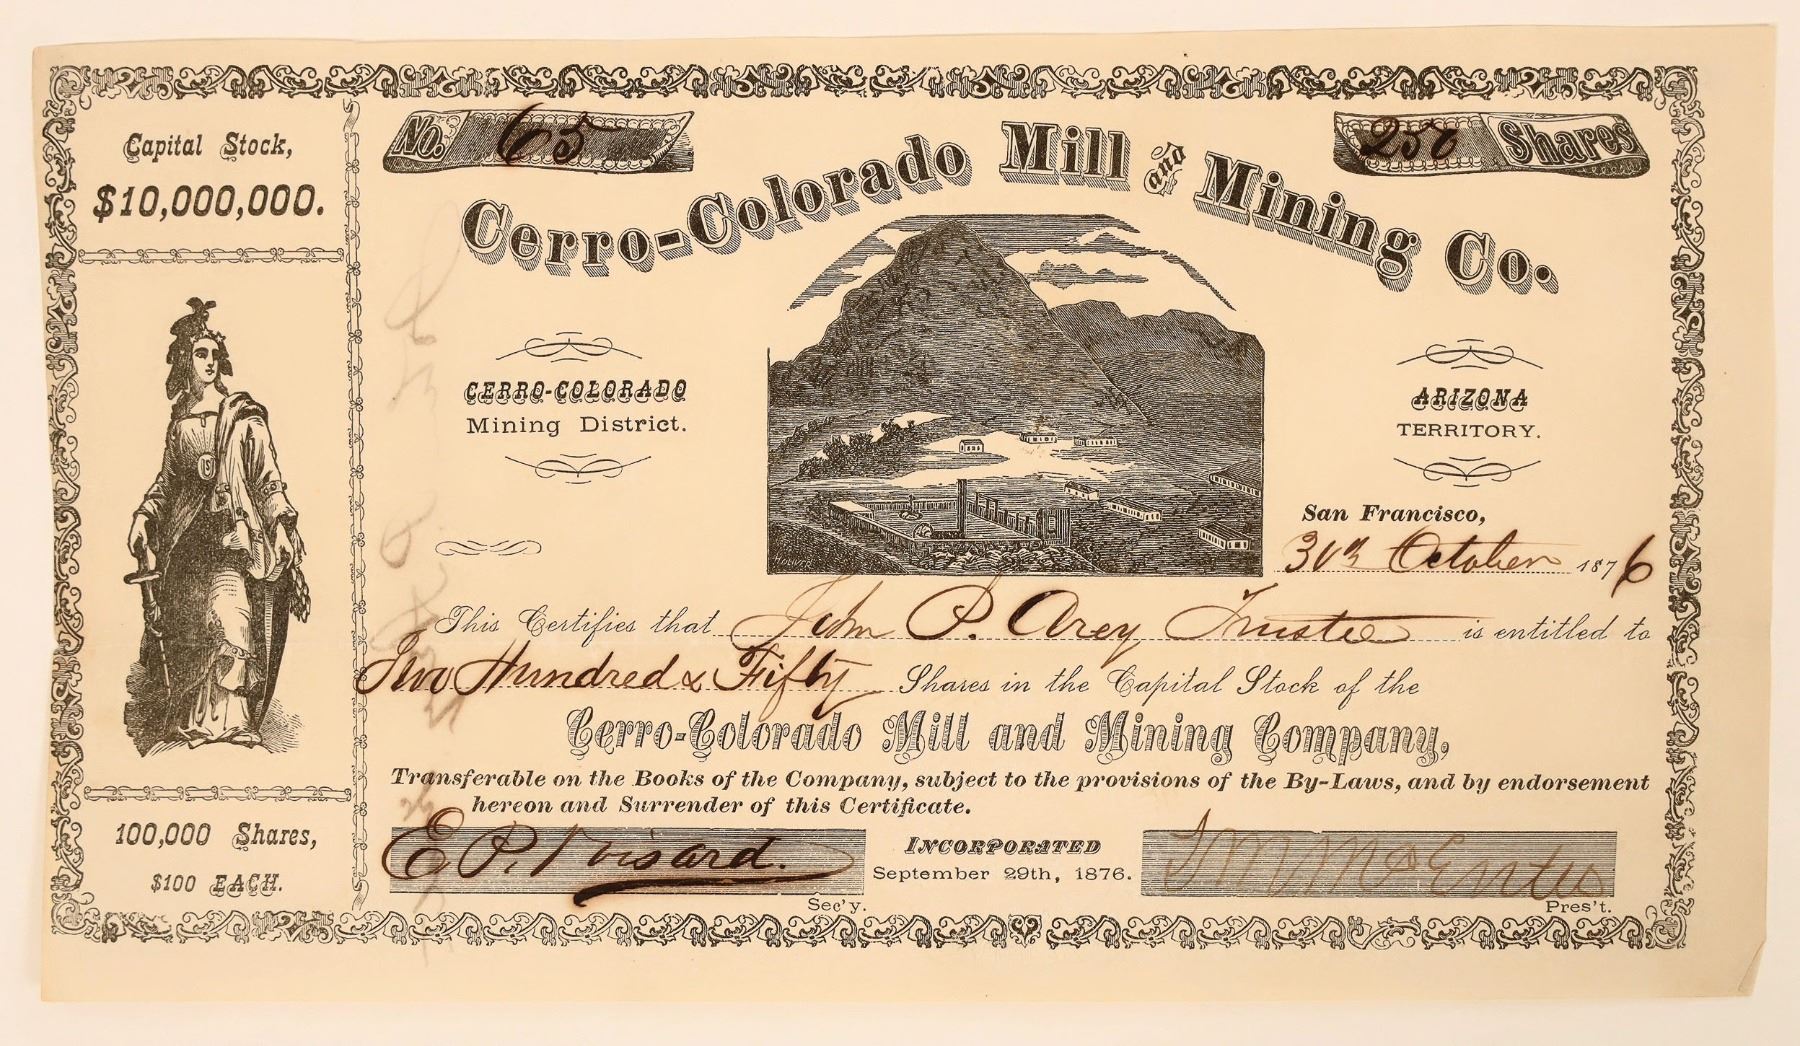 Capital Stock,
$10,000,000.
No. 65
250 Shares
Cerro-Colorado Mill and Mining Co.
CERRO-COLORADO
Mining District.
ARIZONA
TERRITORY.
San Francisco,
30th October 1876
This Certifies that John P. Arey Trustee is entitled to
Two Hundred & Fifty Shares in the Capital Stock of the
Cerro-Colorado Mill and Mining Company,
Transferable on the Books of the Company, subject to the provisions of the By-Laws, and by endorsement
hereon and Surrender of this Certificate.
100,000 Shares,
$100 EACH.
E. P.
Sec'y.
INCORPORATED
September 29th, 1876.
Pres't.
US